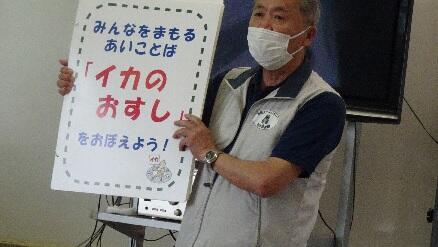 みんなをまもる
あいことば
「イカの
おすし」
をおぼえよう！